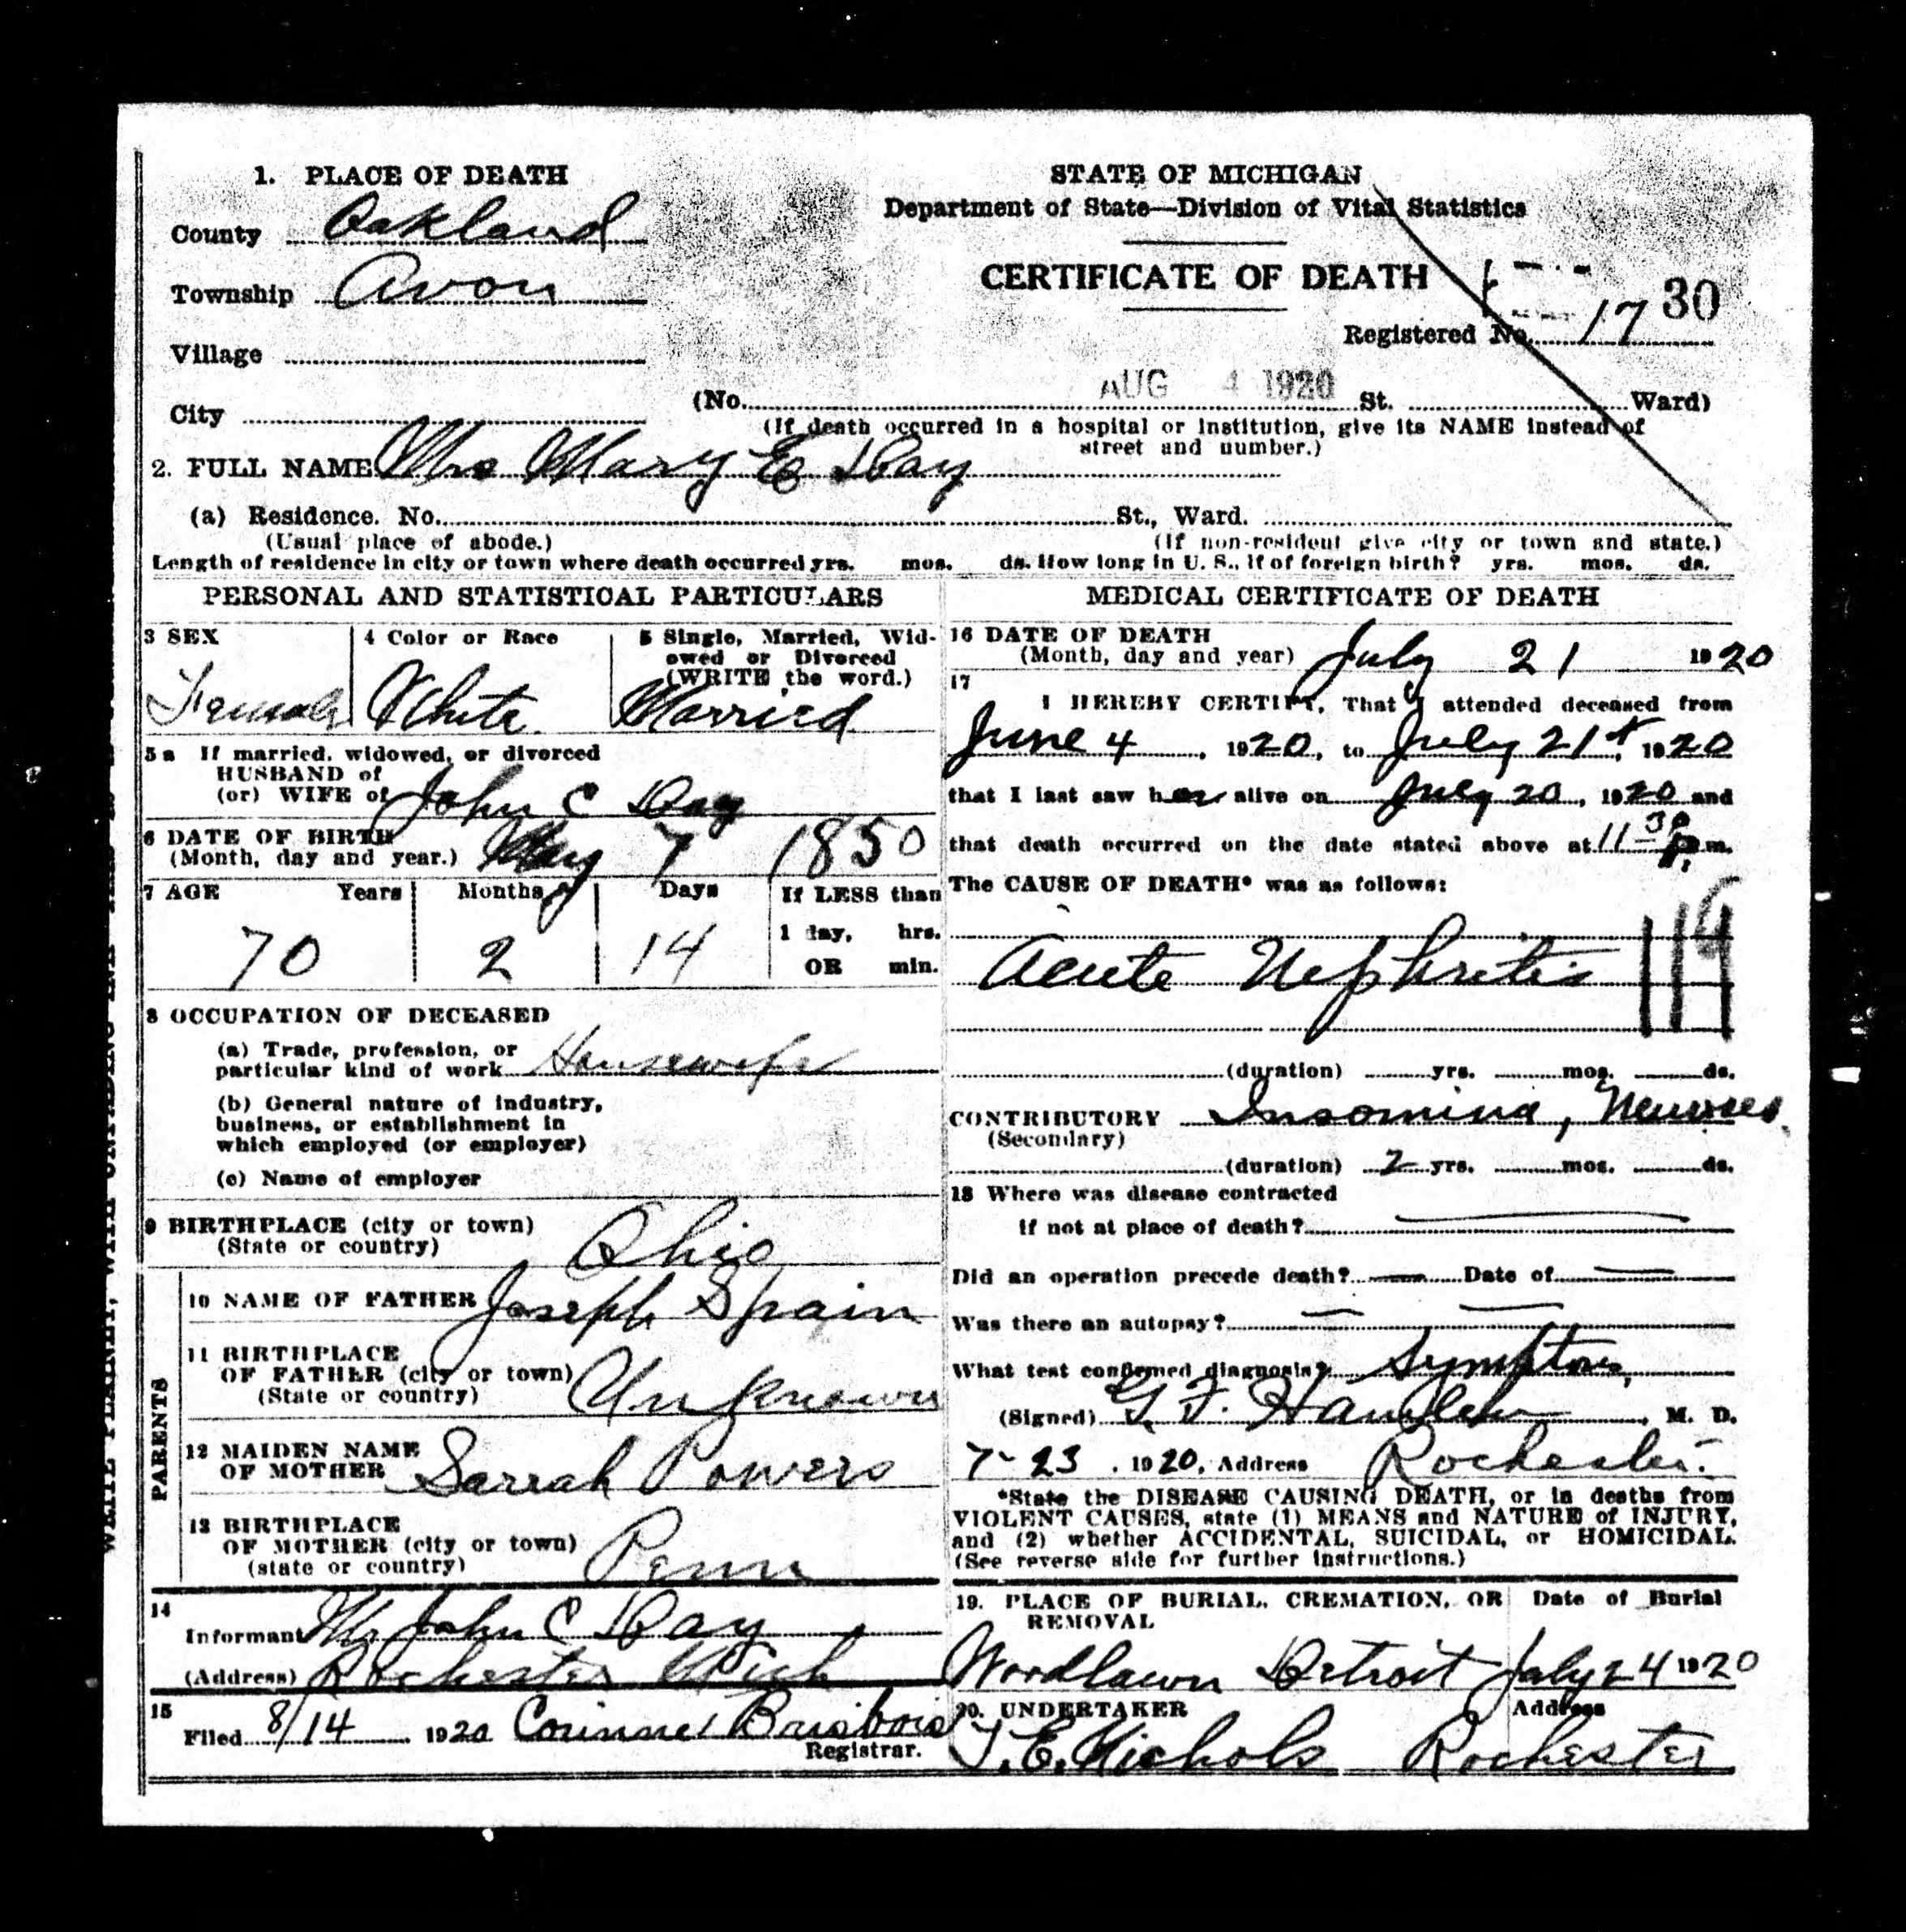 1. PLACE OF DEATH
County Oakland
Township Avon
Village
City
STATE OF MICHIGAN
Department of State—Division of Vital Statistics
CERTIFICATE OF DEATH
30
Registered No. 17
AUG 4 1920
(No. St. Ward)
(If death occurred in a hospital or institution, give its NAME instead of
street and number.)
2. FULL NAME Mrs Mary E Day
(a) Residence. No. St., Ward.
(Usual place of abode.) (If non-resident give city or town and state.)
Length of residence in city or town where death occurred yrs. mos. ds. How long in U. S., if of foreign birth? yrs. mos. ds.
PERSONAL AND STATISTICAL PARTICULARS
3 SEX
Female
4 Color or Race
White
5 Single, Married, Wid-
owed or Divorced
(WRITE the word.)
Married
5a If married, widowed, or divorced
HUSBAND of
(or) WIFE of John C Day
6 DATE OF BIRTH
(Month, day and year.) May 7 1850
7 AGE Years Months Days If LESS than
1 day, hrs.
70 2 14
OR min.
8 OCCUPATION OF DECEASED
(a) Trade, profession, or
particular kind of work Housewife
(b) General nature of industry,
business, or establishment in
which employed (or employer)
(c) Name of employer
9 BIRTHPLACE (city or town)
(State or country) Ohio
PARENTS
10 NAME OF FATHER Joseph Spain
11 BIRTHPLACE
OF FATHER (city or town)
(State or country) Unknown
12 MAIDEN NAME
OF MOTHER Sarrah Powers
13 BIRTHPLACE
OF MOTHER (city or town)
(state or country) Penn
14
Informant Mr John C Day
(Address) Rochester Mich
15
Filed 8/14 1920 Corinne Brisbois
Registrar.
MEDICAL CERTIFICATE OF DEATH
16 DATE OF DEATH
(Month, day and year) July 21 1920
17
I HEREBY CERTIFY, That I attended deceased from
June 4, 1920, to July 21st, 1920
that I last saw her alive on July 20, 1920 and
that death occurred on the date stated above at 11 30 P. m.
The CAUSE OF DEATH* was as follows:
Acute Nephritis
(duration) yrs. mos. ds.
CONTRIBUTORY Insomina,
(Secondary)
(duration) 2 yrs. mos. ds.
18 Where was disease contracted
if not at place of death?
Did an operation precede death? Date of
Was there an autopsy?
What test confirmed diagnosis?
(Signed) G. F. M. D.
7-23, 1920, Address Rochester.
*State the DISEASE CAUSING DEATH, or in deaths from
VIOLENT CAUSES, state (1) MEANS and NATURE of INJURY,
and (2) whether ACCIDENTAL, SUICIDAL, or HOMICIDAL.
(See reverse side for further instructions.)
19. PLACE OF BURIAL, CREMATION, OR
REMOVAL
Woodlawn Detroit
Date of Burial
July 24 1920
20. UNDERTAKER
T. E. Nichols
Address
Rochester